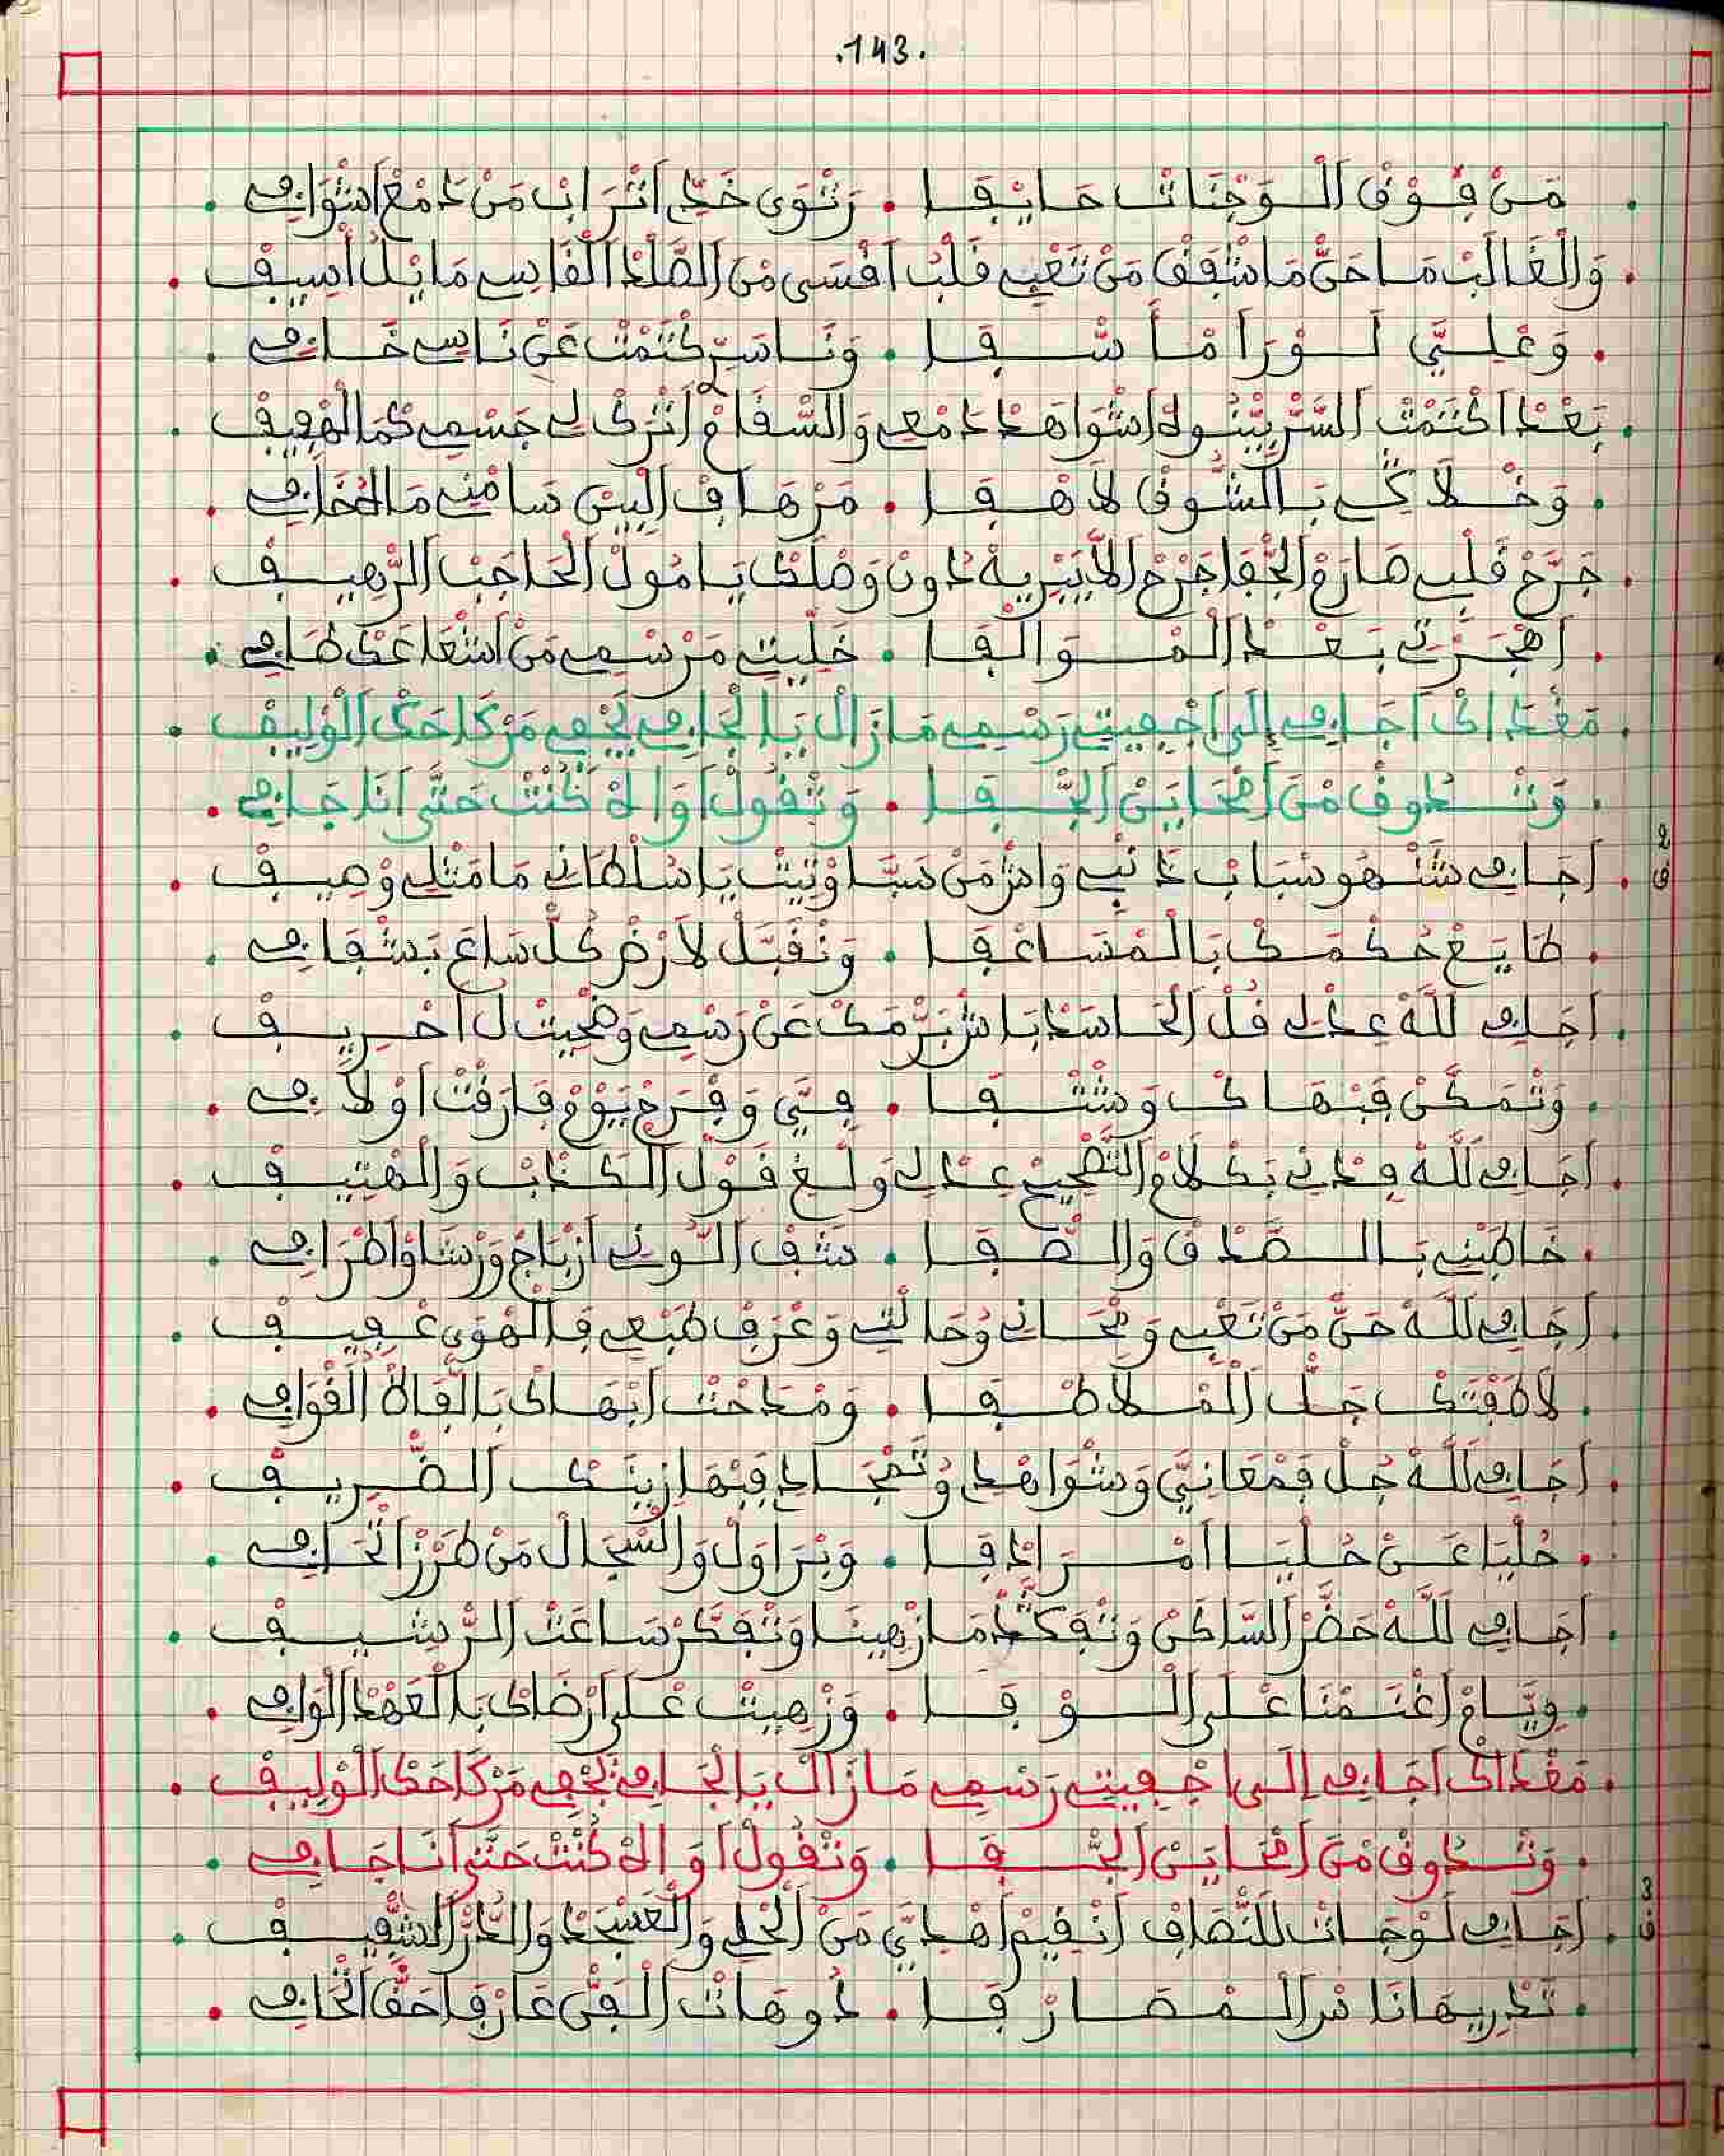 .143.
. مَنْ فُوْقْ الْوَجْنَاتْ حَايْفَا . رَتْوَى خَدِّ اتْرَابْ مَنْ دَمْعْ اشْوَافِي .
. وَالْغَالَبْ مَا حَنّْ مَاشْفَقْ مَنْ تَعْبِي قَلْبُ اقْسَى مْنْ الصَّلْدْ الْقَاسِي مَا يْلُ اسِيفْ .
. وَعْلِيَّ لَوْرَامْ أَشْفَا . وَنَا سَرّ كْتَمْتْ عَنْ نَاسِي خَافِي .
. بَعْدْ اكْتَمْتْ السَّرّ بَيّْنُوهْ اشْوَاهَدْ دَمْعِي وَالسّْقَامْ اتْرَكْ لِي جَسْمِي كَمَا الْهْفِيفْ .
. وَخْلَاكِي بَالشُّوقْ لَاهْفَا . مَرْهَافْ الْبِينْ سَامْنِي مَا
. جَرَّحْ قَلْبِي صَارَمْ الْجْفَا جَرْحْ لَا يَبْرِيهْ دُونْ وَصْلَكْ يَا مُولْ الْحَاجَبْ الرّْهِيفْ .
. اهْجَرْتِي بَعْدْ الْمْوَالْفَا . خَلِّيتِي مَرْسْمِي مَنْ اشْعَاعَكْ طَافِي .
. مَقْدَاكْ اجَافِي إِلَى اجْفِيتِي رَسْمِي مَازَالْ يَا الْجَافِي تَجْفِي مَرْكَاحَكْ الْوْلِيفْ .
. وَتْدُوقْ مْنْ امْحَايَنْ الْجْفَا . وَتْقُولْ اوَاهْ كُنْتْ حَتَّى أَنَا جَافِي .
2
ق
. اجَافِي شَنْهُو سْبَابْ دَنْبِي وَاشْ مَنْ سَبَّا وْنِيتْ يَا سُلْطَانِي مَا مَثْلِي وْصِيفْ .
. طَايَعْ حُكْمَكْ بَالْمْسَاعْفَا . وَنْقَبَّلْ لَارْضْ كُلّْ سَاعَ بَشْفَافِي .
. اجَافِي للَّهْ عِدْ لِي قُلْ الْحَاسَدْ بَاشْ بَرّْمَكْ عَنْ رَسْمِي وَضْحِيتْ لُ احْرِيفْ .
. وَتْمَكَّنْ فَبْهَاكْ وَشْتْفَا . فِيَّ وَفْرَحْ يَوْمْ فَارَقْتْ اوْلَافِي .
. اجَافِي للَّهْ فِدْنِي بَكْلَامْ التّْصْحِيحْ عِدْ لِي وَلْغِ قَوْلْ الْكَدَّابْ وَالْهْتِيفْ .
. خَاطَبْنِي بَالصَّدْقْ وَالصّْفَا . شَفْ الُّونِي ازْبَاجْ وَرْسَاوْ اطْرَافِي .
. اجَافِي للَّهْ حَنّْ مَنْ تَعْبِي وَمْحَانِي وْحَالْتِي وَعْرَفْ طَبْعِي فَالْهْوَى عْفِيفْ .
. لَاطَفْتَكْ جَلّْ الْمْلَاطْفَا . وَمْدَحْتْ ابْهَاكْ بَالْفَاهْ الْقْوَافِي .
. اجَافِي للَّهْ جُلْ فَمْعَانِيَّ وَشْوَاهْدِي وْتَمْجَادِي فَبْهَا زِينَكْ الضّْرِيفْ .
. حُلْيَا عَنْ حُلْيَا امْرَادْفَا . وَبْرَاوَلْ وَالسّْجَالْ مَنْ طَرْزْ اتْحَافِي .
. اجَافِي للَّهْ حَضَّرْ السَّاكَنْ وَتْفَكَّدْ مَا زْهِينَا وَتْفَكَّرْ سَاعَتْ الرّْشِيفْ .
. وِيَّامْ اغْتَمْنَا عْلَى الْوْفَا . وَزْهِيتْ عْلَى ارْضَاكْ بَالْعَهْدْ الْوَافِي .
. مَقْدَاكْ اجَافِي إِلَى اجْفِيتِي رَسْمِي مَازَالْ يَا الْجَافِي تَجْفِي مَرْكَاحَكْ الْوْلِيفْ .
. وَتْدُوقْ مْنْ امْحَايَنْ الْجْفَا . وَتْقُولْ اوَاهْ كُنْتْ حَتَّى أَنَا جَافِي .
3
ق
. اجَافِي لَوْجَاتْ لَلنّْصَافْ انْقِيمْ اهْدِيَّ مَنْ الْحْلِي وَالْعَسْجَدْ وَالدُّرّْ الشّْفِيفْ .
. تَدْرِيهَا نَا مْنْ الْمْصَارْفَا . دُوهَاتْ الْفَنّْ عَارْفَا حَقّْ اتْحَافِي .